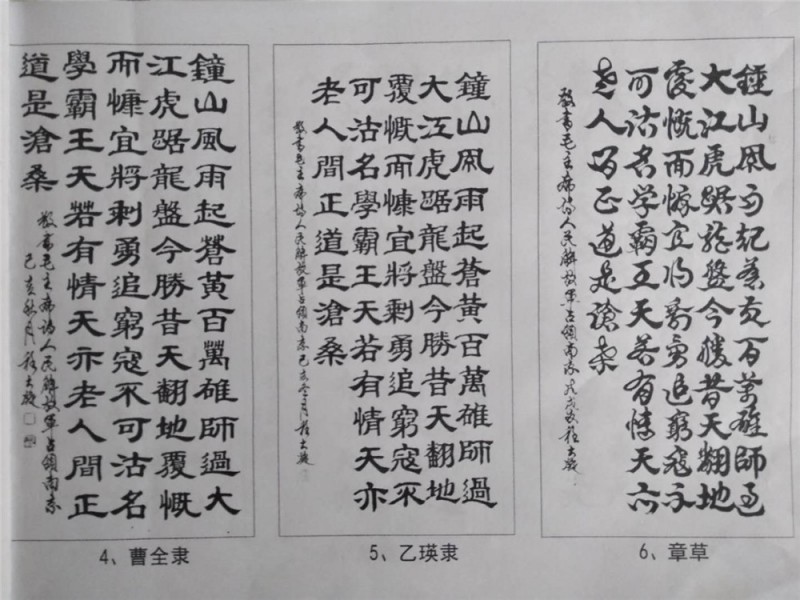 鐘山風雨起蒼黃百萬雄師過大
江虎踞龍盤今勝昔天翻地覆慨
而慷宜將剩勇追窮寇不可沽名
學霸王天若有情天亦老人間正
道是滄桑
敬書毛主席詩人民解放軍占領南京
己亥秋月
4、曹全隶
鐘山風雨起蒼黃百萬雄師過
大江虎踞龍盤今勝昔天翻地
覆慨而慷宜將剩勇追窮寇不
可沽名學霸王天若有情天亦
老人間正道是滄桑
敬書毛主席詩人民解放軍占領南京己亥冬月
5、乙瑛隶
鍾山風雨起蒼黃百萬雄師過
大江虎踞龍盤今勝昔天翻地
覆慨而慷宜將剩勇追窮寇不
可沽名学霸王天若有情天亦
老人間正道是滄桑
敬書毛主席詩人民解放軍占領南京
6、章草